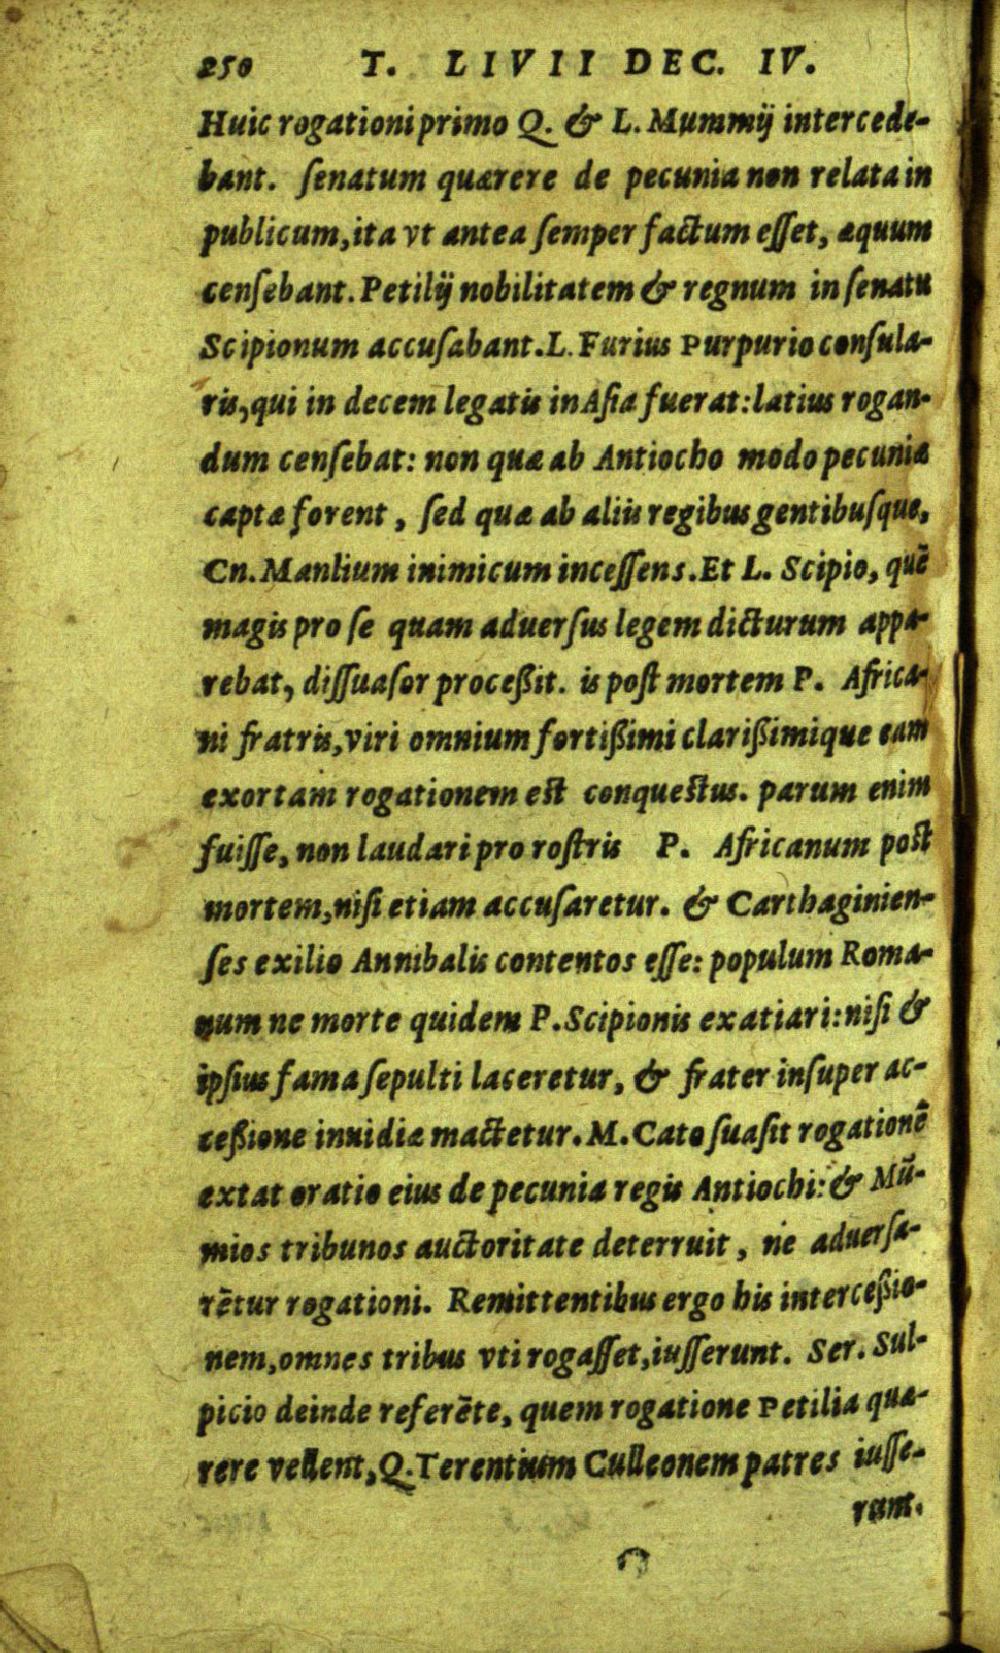 250 T. LIVII DEC. IV.
Huic rogationi primo Q. & L. Mummij intercede-
bant. ſenatum quærere de pecunia non relata in
publicum, ita vt antea ſemper factum eſſet, æquum
cenſebant. Petilij nobilitatem & regnum in ſenatu
Scipionum accuſabant. L. Furius Purpurio conſula-
ris, qui in decem legatis in Aſia fuerat: latius rogan-
dum cenſebat: non quæ ab Antiocho modo pecuniæ
captæ forent, ſed quæ ab aliis regibus gentibuſque,
Cn. Manlium inimicum inceſſens. Et L. Scipio, quē
magis pro ſe quam aduerſus legem dicturum appa-
rebat, diſſuaſor proceßit. is poſt mortem P. Africa-
ni fratris, viri omnium fortißimi clarißimique eam
exortam rogationem eſt conqueſtus. parum enim
fuiſſe, non laudari pro roſtris P. Africanum poſt
mortem, niſi etiam accuſaretur. & Carthaginien-
ſes exilio Annibalis contentos eſſe: populum Roma-
num ne morte quidem P. Scipionis exatiari: niſi &
ipſius fama ſepulti laceretur, & frater inſuper ac-
ceßione inuidiæ mactetur. M. Cato ſuaſit rogationē
extat oratio eius de pecunia regis Antiochi: & Mū-
mios tribunos auctoritate deterruit, ne aduerſa-
rētur rogationi. Remittentibus ergo his interceßio-
nem, omnes tribus vti rogaſſet, iuſſerunt. Ser. Sul-
picio deinde referēte, quem rogatione Petilia quæ-
rere vellent, Q. Terentium Culleonem patres iuſſe-
runt.